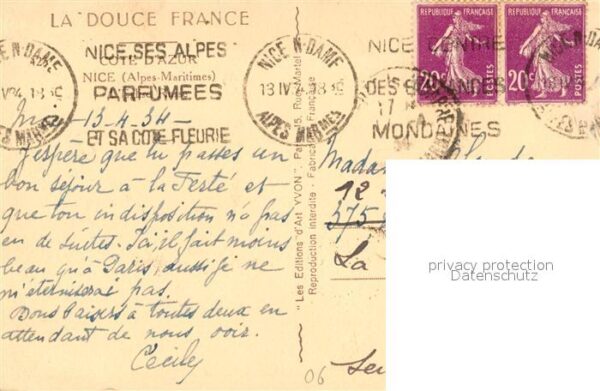 LA DOUCE FRANCE
NICE SES ALPES
COTE D'AZUR
NICE (Alpes-Maritimes)
PARFUMEES
ET SA COTE FLEURIE
NICE N-DAME
13 IV
ALPES MARMES
NICE CENTRE
DES
MONDAINES
REPUBLIQUE FRANÇAISE
20c
POSTES
REPUBLIQUE FRANÇAISE
20c
POSTES
13-4-34
J'espère que tu passes un
bon séjour à la Ferté et
que ton indisposition n'a pas
eu de suites. Ici, il fait moins
beau qu'à Paris, aussi je ne
m'éterniserai pas.
Bons baisers à toutes deux en
attendant de vous voir.
Cecily
"Les Editions d'Art YVON", Paris, 15, Rue Martel
Reproduction interdite - Fabrication Française
Madam
12
375
La
06
privacy protection
Datenschutz